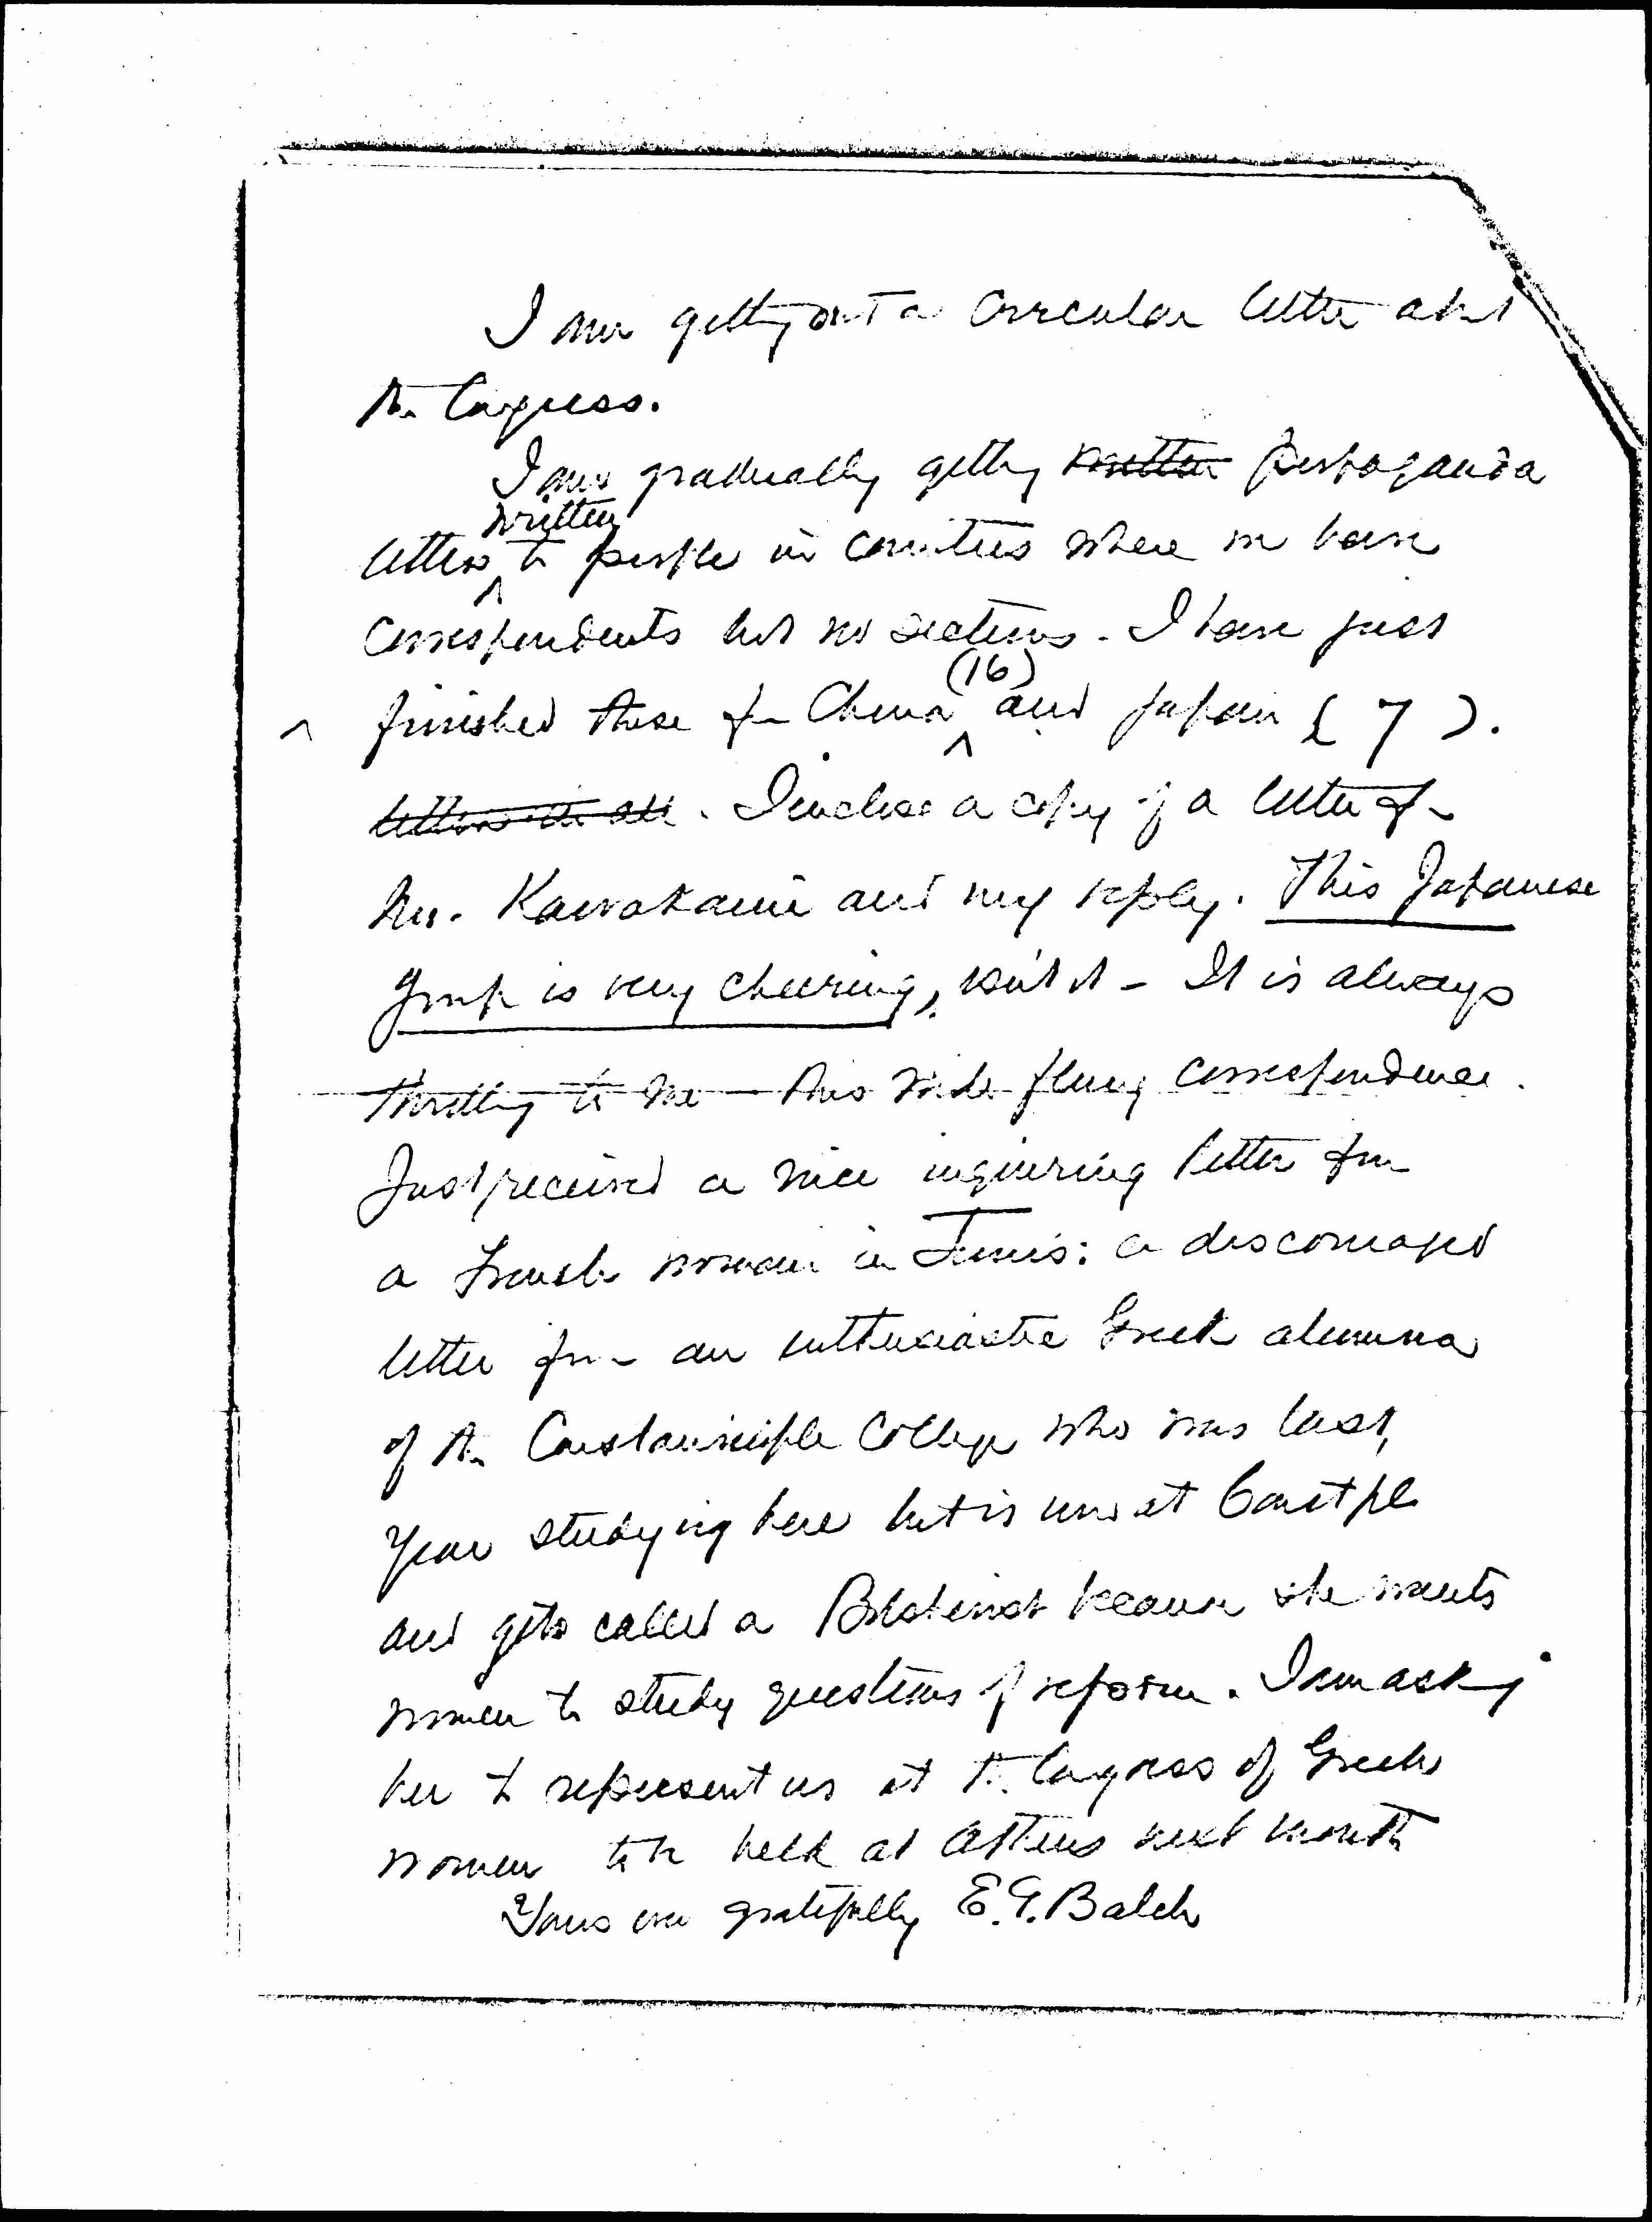 I am getting out a circular letter abt
the Congress.
I am gradually getting written propaganda
written
letters to people in countries where we have
correspondents but no sections. I have just
(16)
finished those for China and Japan (7).
letters in all. I enclose a copy of a letter fr
Mrs. Kawakami and my reply. This Japanese
group is very cheering, isn't it - It is always
thrilling to me - this wide flung correspondence.
Just received a nice inquiring letter from
a French woman in Tunis: a discouraged
letter from an enthusiastic Greek alumna
of the Constantinople College who was last
year studying here but is now at Constple
and gets called a Bolshevist because she wants
women to study questions of reform. I am asking
her to represent us at the Congress of Greek
women to be held at Athens next month
Yours ever gratefully E.G. Balch